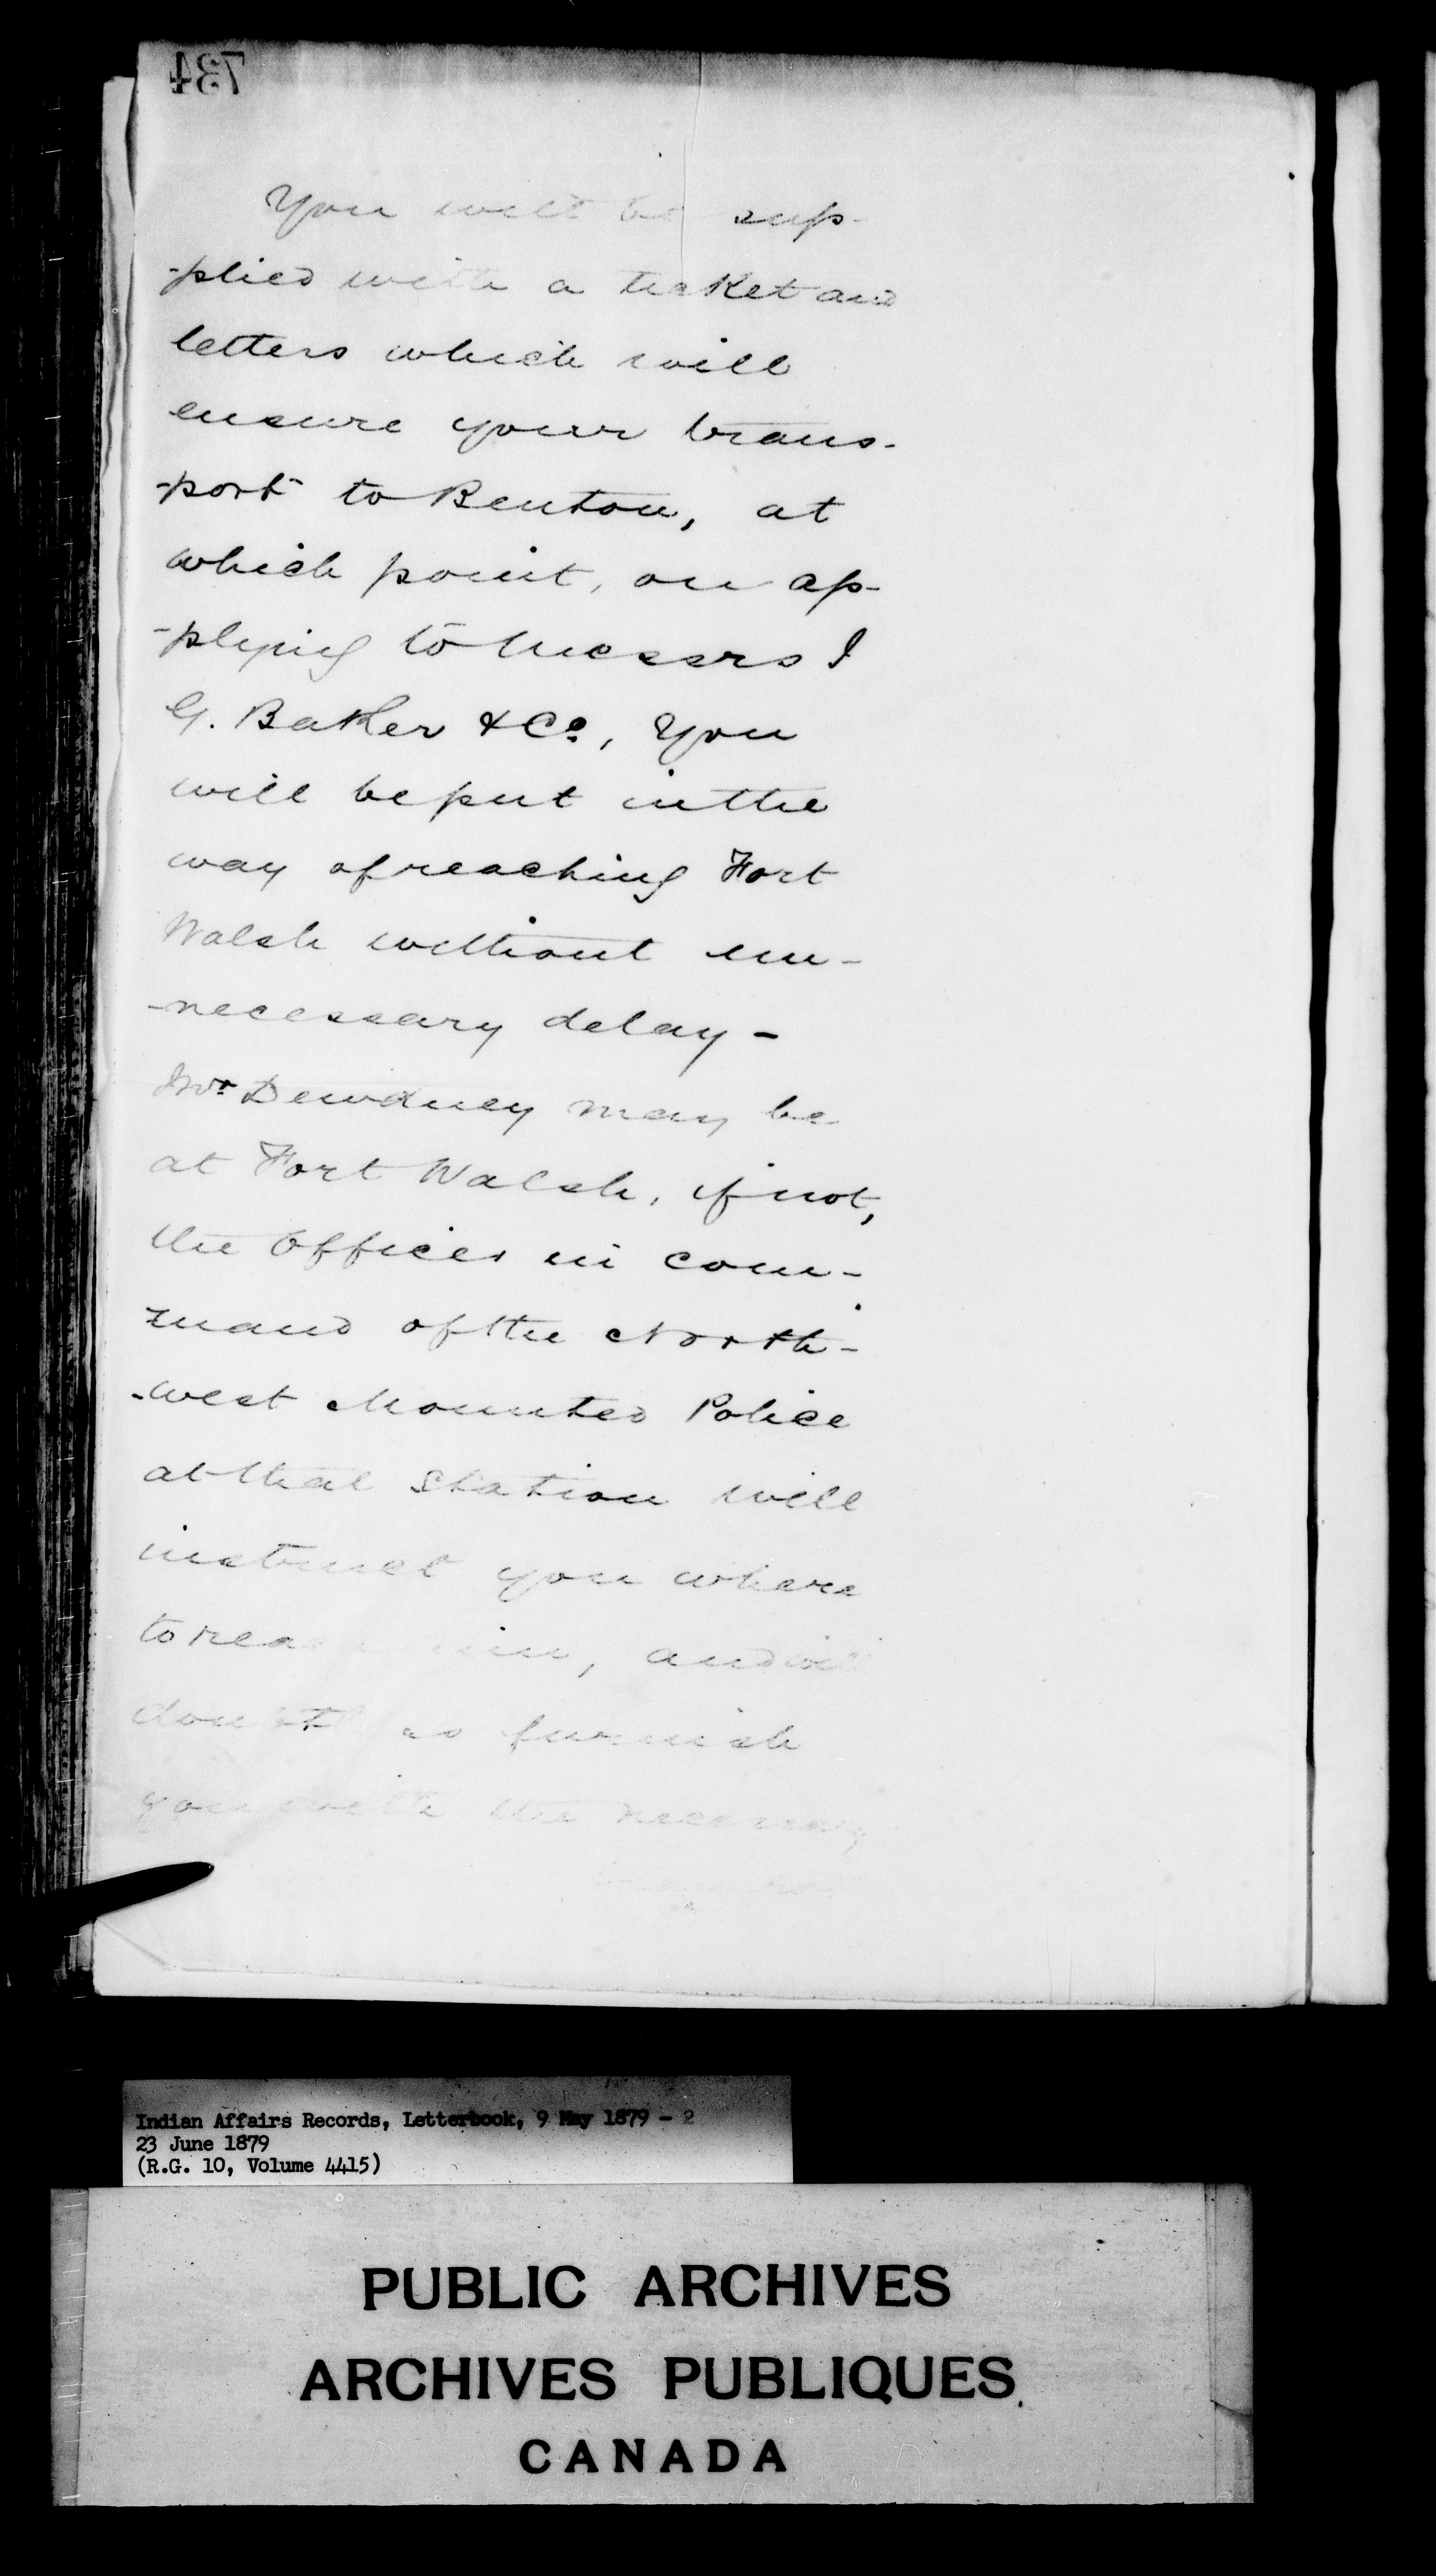 734
You will be sup-
-plied with a ticket and
letters which will
ensure your trans-
-port to Benton, at
which point, on ap-
-plying to Messrs I
G. Baker & Co., you
will be put in the
way of reaching Fort
Walsh without un-
-necessary delay -
Mr. Dewdney may be
at Fort Walsh, if not,
the Officer in com-
-mand of the North-
-west Mounted Police
at that Station will
instruct you where
to reach him, and will
doubtless furnish
you with the necessary
Indian Affairs Records, Letterbook, 9 May 1879 - 2
23 June 1879
(R.G. 10, Volume 4415)
PUBLIC ARCHIVES
ARCHIVES PUBLIQUES
CANADA